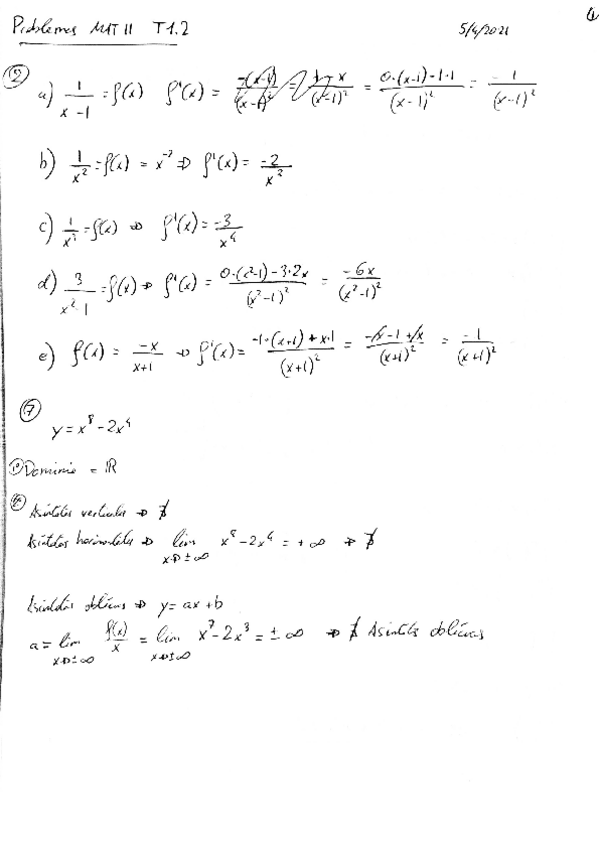 Problemas MAT II T1.2 5/4/2021
② a) 1/(x-1) = f(x) f'(x) = = = (0·(x-1)-1·1)/(x-1)² = -1/(x-1)²
b) 1/x² = f(x) = x⁻² ⇒ f'(x) = -2/x³
c) 1/x³ = f(x) ⇒ f'(x) = -3/x⁴
d) 3/(x²-1) = f(x) ⇒ f'(x) = (0·(x²-1)-3·2x)/(x²-1)² = -6x/(x²-1)²
e) f(x) = -x/(x+1) ⇒ f'(x) = (-1·(x+1)+x·1)/(x+1)² = (-x-1+x)/(x+1)² = -1/(x+1)²
⑦
y = x⁸-2x⁴
Dominio = ℝ
Asíntotas verticales ⇒ ∄
Asíntotas horizontales ⇒ lim x→±∞ x⁸-2x⁴ = +∞ ⇒ ∄
Asíntotas oblicuas ⇒ y = ax+b
a = lim x→±∞ f(x)/x = lim x→±∞ x⁷-2x³ = ±∞ ⇒ ∄ Asíntotas oblicuas